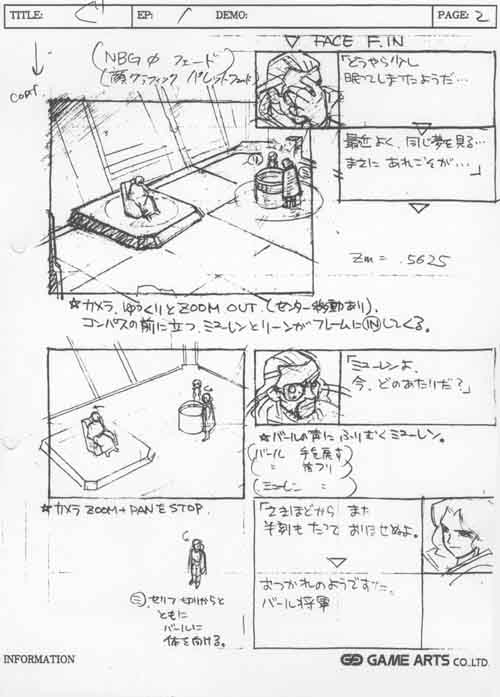 TITLE: EP: 1 DEMO: PAGE: 2
▽ FACE F.IN
(NBGφ フェード)
(顔グラフィック パレットフェード)
CONT.
「どうやら少し
眠ってしまったようだ…
最近よく、同じ夢を見る…
まさに あれこそが…」
Zm = .5625
☆カメラ、ゆっくりとZOOM OUT.(センター移動あり).
コンパスの前に立つ、ミューレンとリーンがフレームにINしてくる。
「ミューレンよ、
今、どのあたりだ?」
☆バールの声に ふりむくミューレン。
バール 手を戻す
〃
ミューレン 〃
☆カメラ ZOOM+PANをSTOP.
「さきほどから また
半刻も たって おりませぬよ。
おつかれのようですな.
バール将軍
ミ.セリフ切りかえと
ともに
バールに
体を向ける。
INFORMATION
GAME ARTS CO.,LTD.